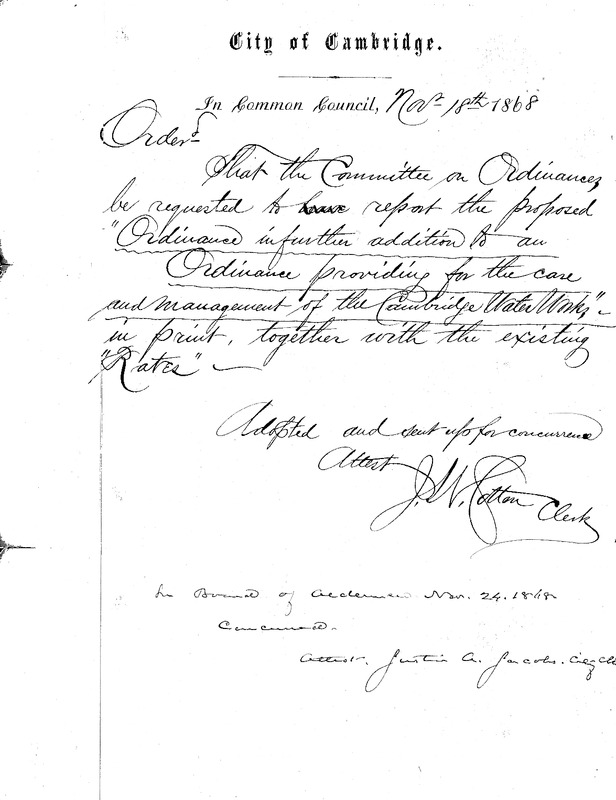 City of Cambridge.
In Common Council, Nov. 18th 1868
Ordered
That the Committee on Ordinances
be requested to have report the proposed
"Ordinance in further addition to an
Ordinance providing for the care
and management of the Cambridge Water Works"
in print, together with the existing
"Rates"
Adopted and sent up for concurrence
Attest
Cotton Clerk
In Board of Aldermen Nov. 24. 1868
Concurred.
Attest. Justin A. Jacobs. City Cle